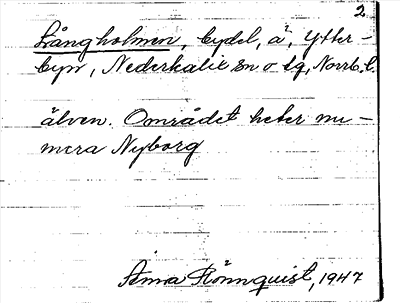 2
Långholmen, bydel, å, Ytter-
byn, Nederkalix sn o tg, Norrb. l.
älven. Området heter nu-
mera Nyborg
Rönnquist, 1947